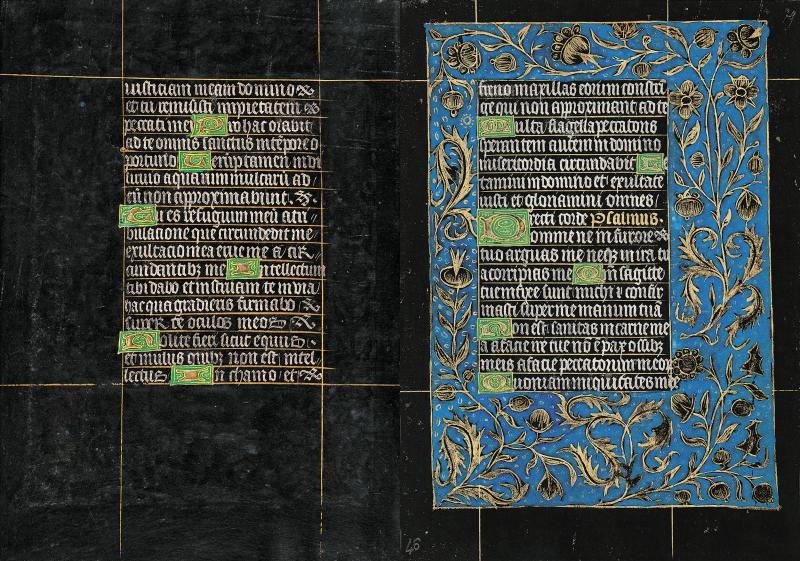 iusticiam meam domino
et tu remisisti impietatem
peccati mei Pro hac orabit
ad te omnis sanctus in tēpore o
portuno Uerūptamen in di
luuio aquarum multarū ad
eū non approximabunt.
Tu es refugium meū a tri
bulatione que circundedit me
exultacio mea erue me a cir
cundantibz me Intellectum
tibi dabo et instruam te in via
hac qua gradieris firmabo
super te oculos meos
Nolite fieri sicut equus
et mulus quibz non est intel
lectus In chamo et
freno maxillas eorum constri
ge qui non approximant ad te
Multa flagella peccatoris
sperantem autem in domino
misericordia circundabit Le
tamini in domino et exultate
iusti et gloriamini omnes
recti corde Psalmus.
Domine ne in furore
tuo arguas me neqz in ira tu
a corripias me Qm̄ sagitte
tue infixe sunt michi et confir
masti super me manum tuā
Non est sanitas in carne me
a a facie ire tue nō ē pax ossibz
meis a facie peccatorum meor
Quoniam iniquitates mee
46